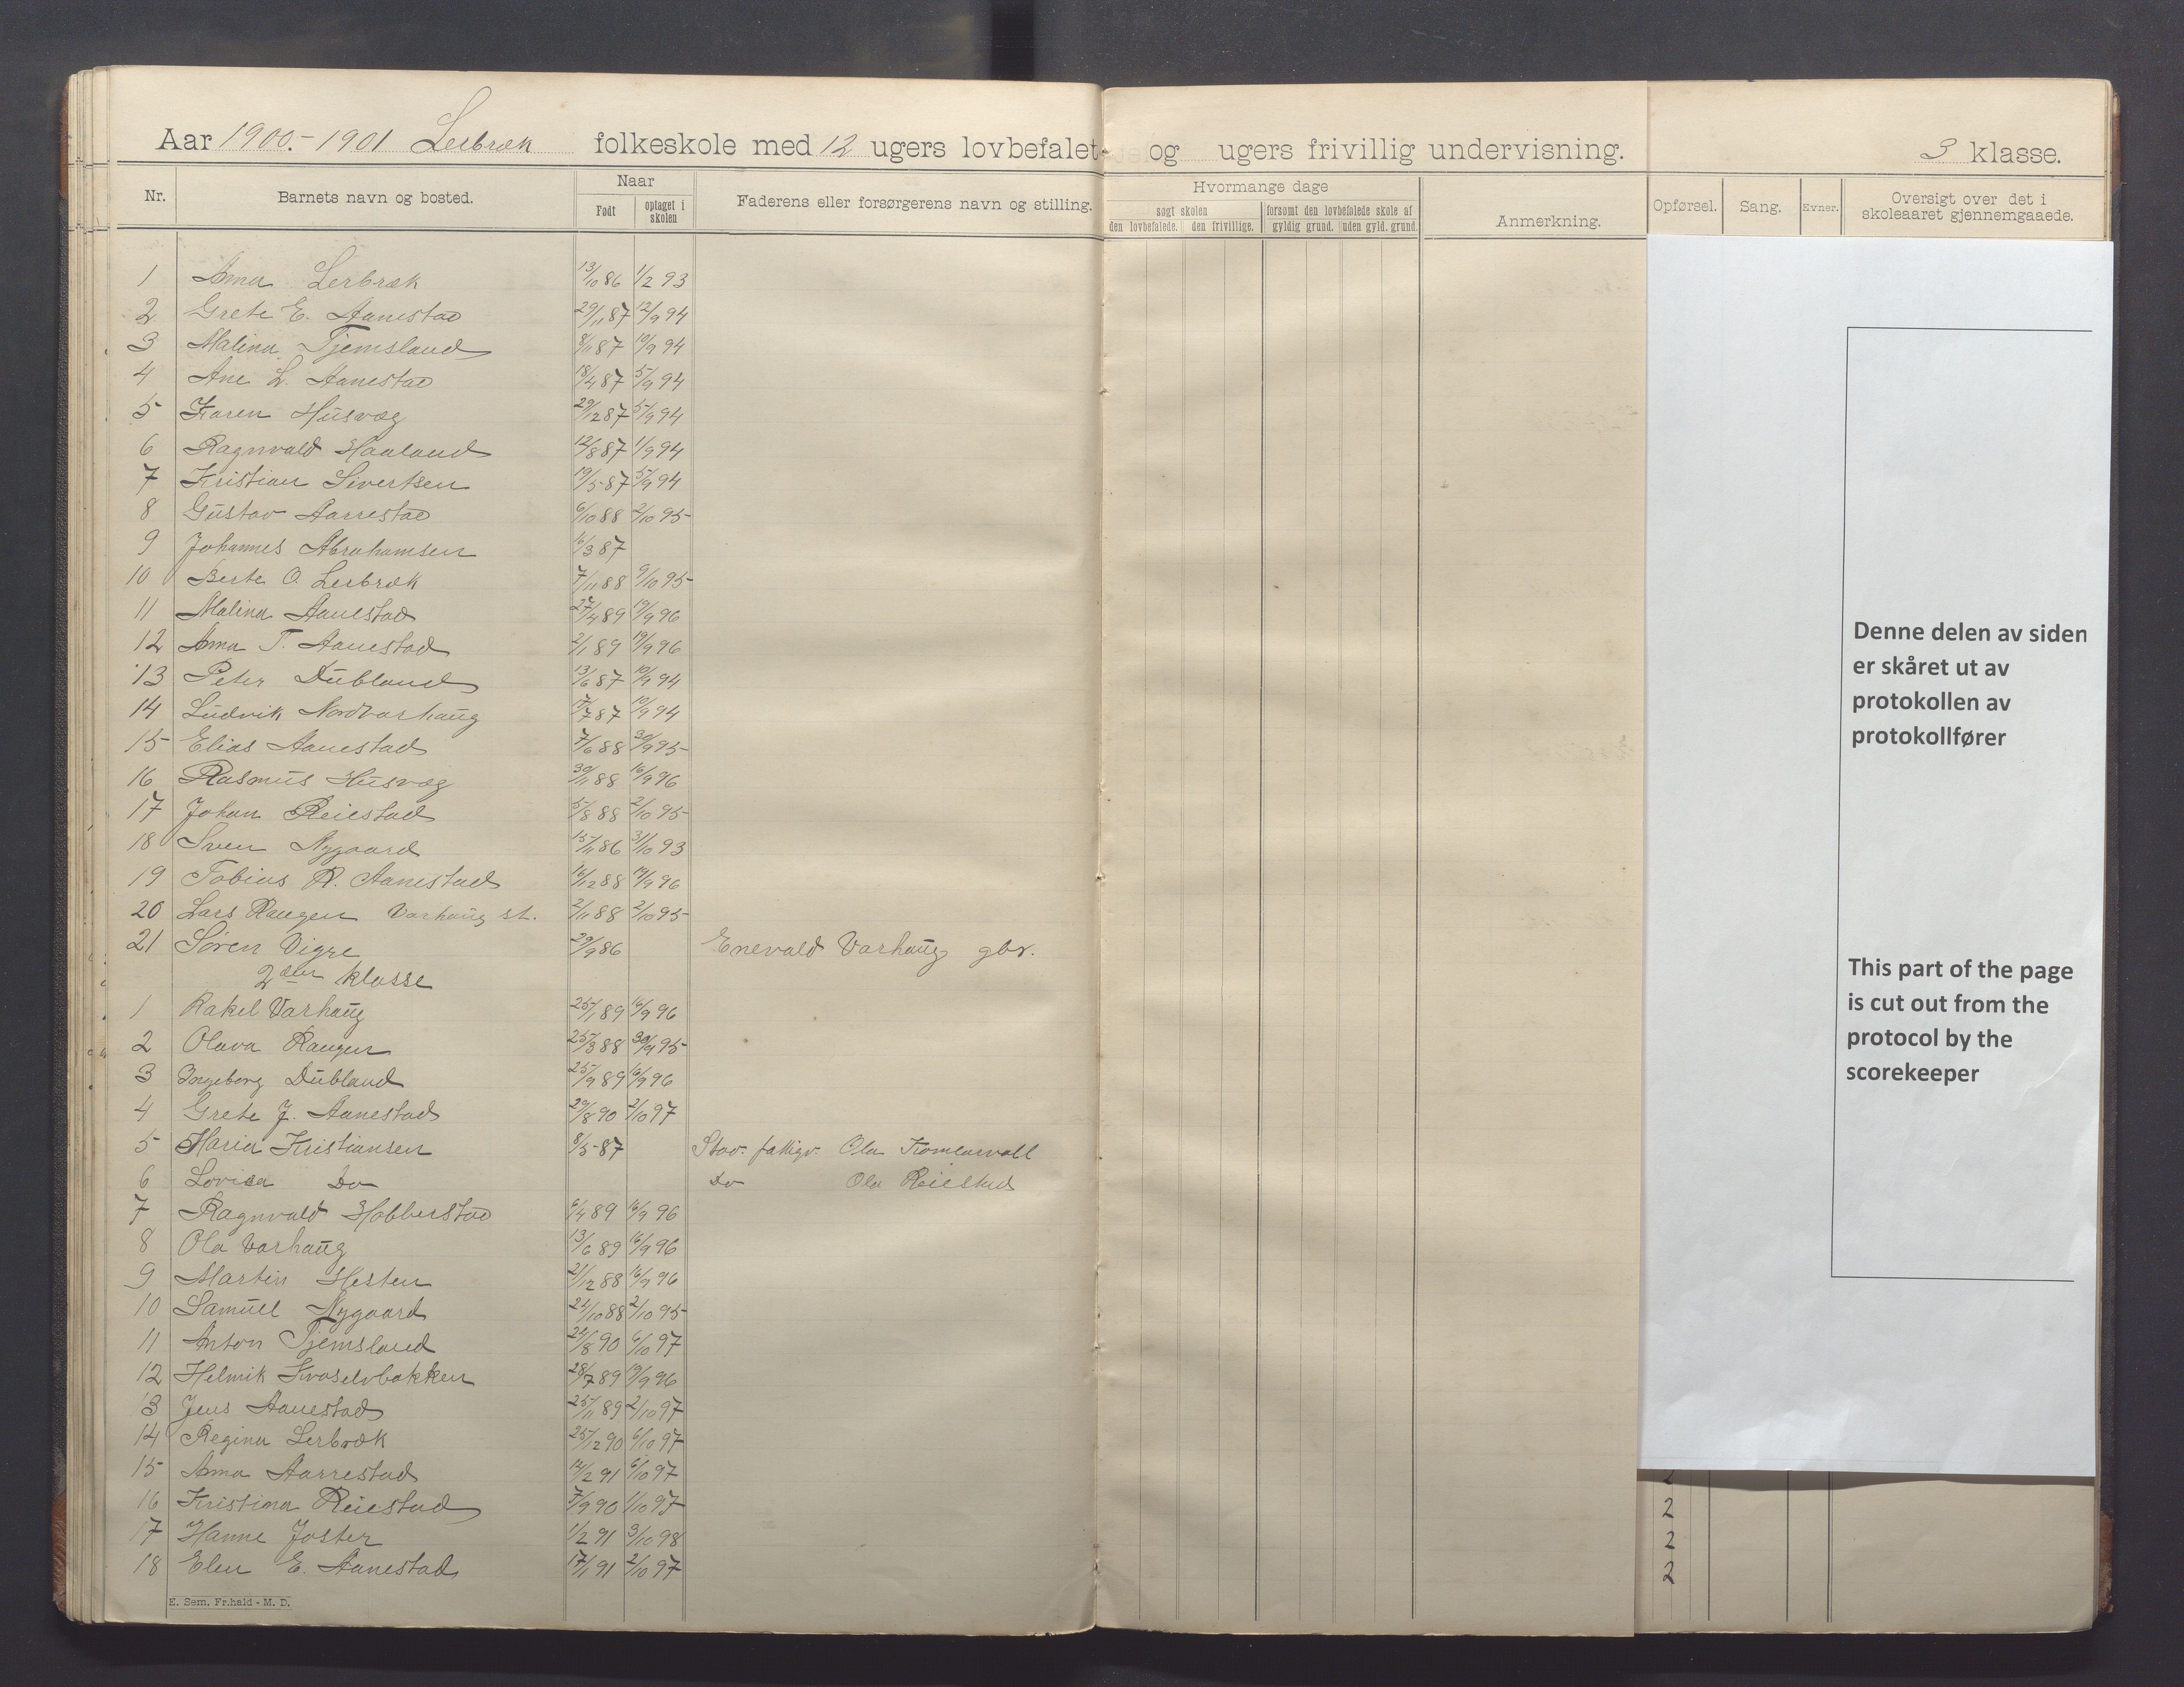 Aar 1900.-1901 Lerbræk folkeskole med 12 ugers lovbefalet og ugers frivillig undervisning. 3 klasse.
Nr. Barnets navn og bosted. Naar Faderens eller forsørgerens navn og stilling. Hvormange dage Anmerkning. Opførsel. Sang. Evner. Oversigt over det i skoleaaret gjennemgaaede.
Født optaget i skolen søgt skolen forsømt den lovbefalede skole af
den lovbefalede. den frivillige. gyldig grund. uden gyld. grund.
1 Anna Lerbræk 13/10 86 1/2 93
2 Grete E. Aanestad 29/11 87 12/9 94
3 Malina Tjemsland 8/11 87 10/9 94
4 Ane L. Aanestad 18/4 87 5/9 94
5 Karen Husvæg 29/12 87 5/9 94
6 Ragnvald Haaland 12/8 87 1/9 94
7 Kristian Sivertsen 19/5 87 5/9 94
8 Gustav Aarrestad 6/10 88 2/10 95
9 Johannes Abrahamsen 16/3 87
10 Berte O. Lerbræk 7/11 88 9/10 95
11 Malina Aanestad 27/4 89 19/9 96
12 Anna T. Aanestad 2/1 89 19/9 96
13 Peter Dubland 13/6 87 10/9 94
14 Ludvik Nordvarhaug 7/7 87 10/9 94
15 Elias Aanestad 7/6 88 30/9 95
16 Rasmus Husvæg 30/11 88 16/9 96
17 Johan Reiestad 5/8 88 2/10 95
18 Sven Nygaard 15/11 86 31/10 93
19 Tobias R. Aanestad 16/12 88 19/9 96
20 Lars Haugen Varhaug st. 2/11 88 2/10 95
21 Søren Vigre 29/9 86 Enevald Varhaug gbr.
2den klasse
1 Rakel Varhaug 25/1 89 16/9 96
2 Olava Haugen 25/3 88 30/9 95
3 Ingeborg Dubland 25/9 89 16/9 96
4 Grete J. Aanestad 29/8 90 2/10 97
5 Maria Kristiansen 8/5 87 Stav. fattigv. Ola
6 Lovisa Do Do Ola Reiestad
7 Ragnvald Hobberstad 6/4 89 16/9 96
8 Ola Varhaug 13/6 89 16/9 96
9 Martin Hesten 21/12 88 16/9 96
10 Samuel Nygaard 24/10 88 2/10 95
11 Anton Tjemsland 24/8 90 6/10 97
12 Helmik 28/7 89 19/9 96
13 Jens Aanestad 25/11 89 2/10 97
14 Regina Lerbræk 25/12 90 6/10 97
15 Anna Aarrestad 14/2 91 6/10 97
16 Kristina Reiestad 7/9 90 1/10 97
17 Hanne Joster 1/2 91 3/10 98
18 Elen E. Aanestad 17/1 91 2/10 97
E. Sem. Fr.hald - M. D.
Denne delen av siden
er skåret ut av
protokollen av
protokollfører
This part of the page
is cut out from the
protocol by the
scorekeeper
2
2
2
2